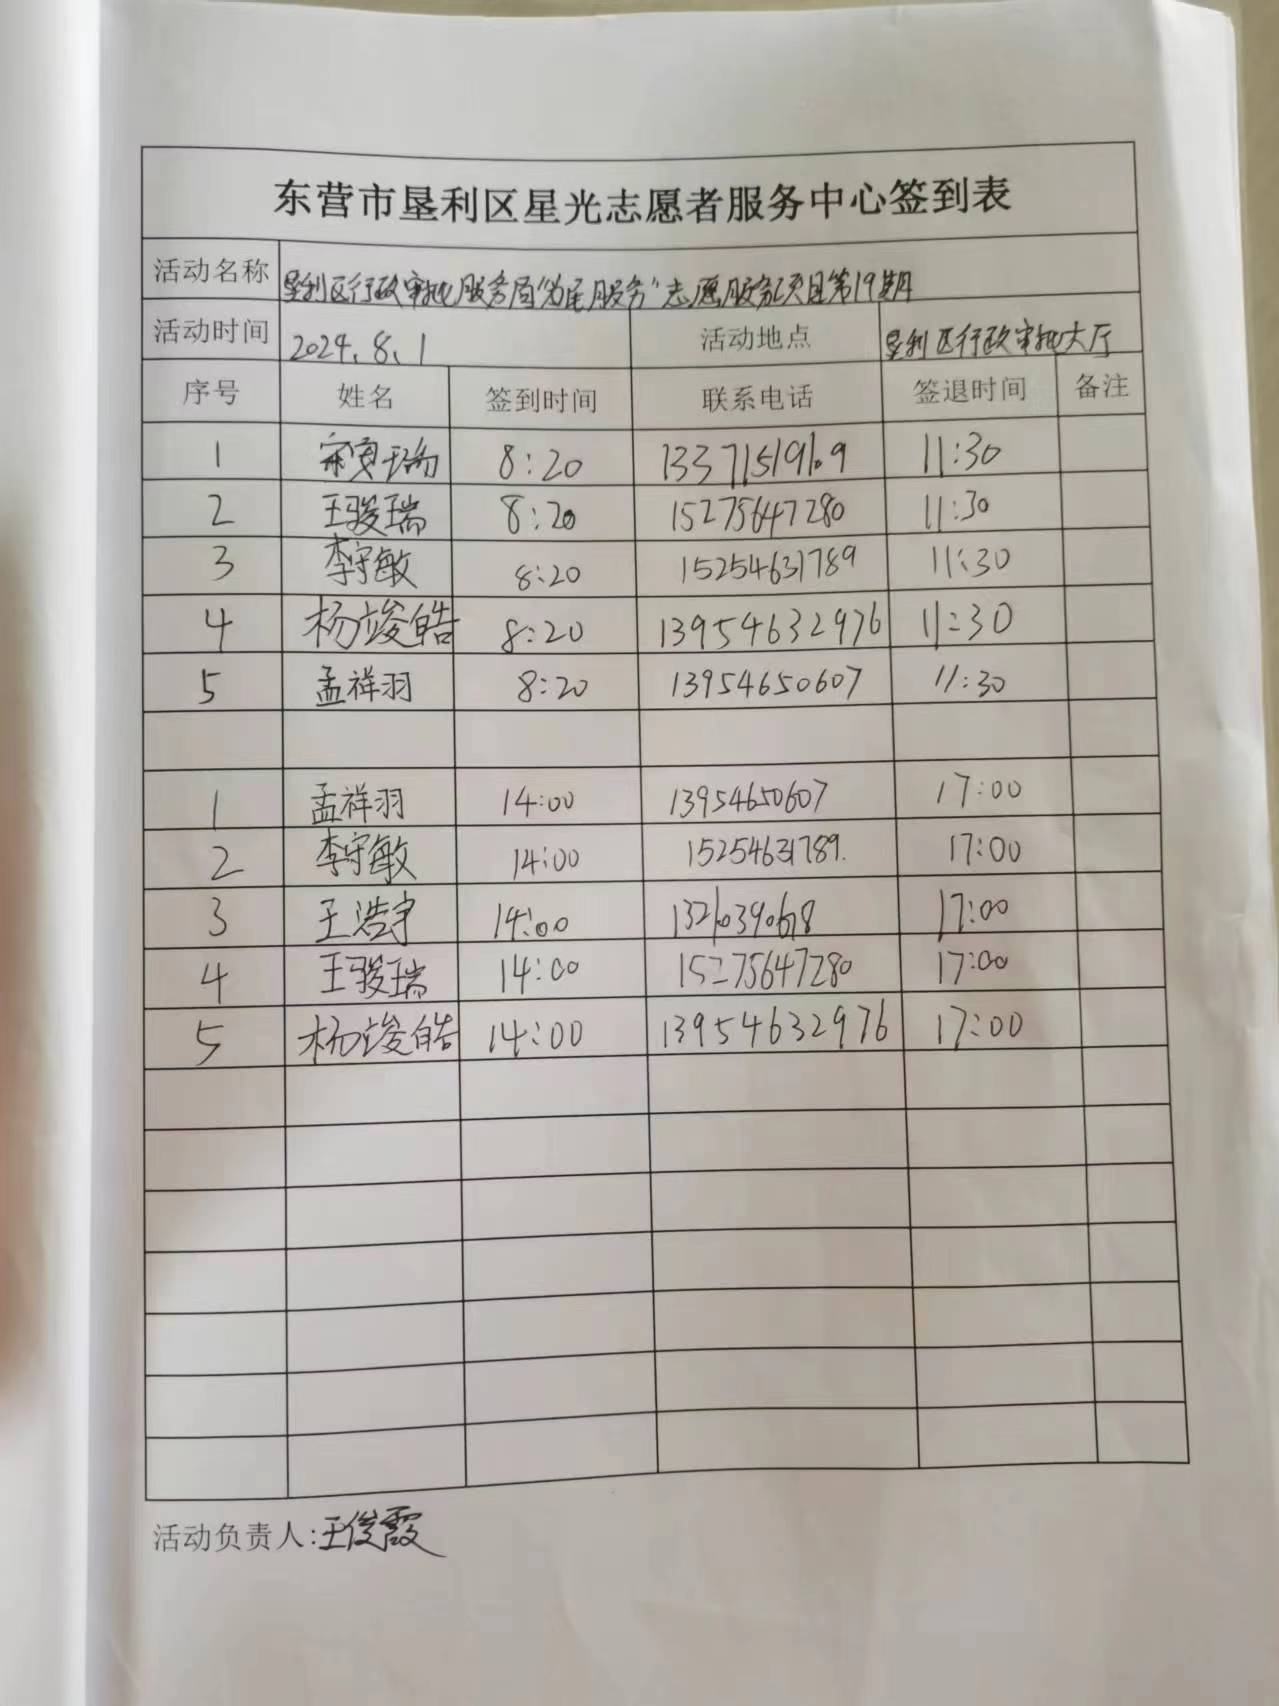 东营市垦利区星光志愿者服务中心签到表
活动名称 垦利区行政审批服务局“为民服务”志愿服务项目第19期
活动时间 2024.8.1 活动地点 垦利区行政审批大厅
序号 姓名 签到时间 联系电话 签退时间 备注
1 8:20 11:30
2 王骏瑞 8:20 15275647280 11:30
3 李守敏 8:20 15254631789 11:30
4 杨竣皓 8:20 13954632976 11:30
5 孟祥羽 8:20 13954650607 11:30
1 孟祥羽 14:00 13954650607 17:00
2 李守敏 14:00 15254631789. 17:00
3 王浩宇 14:00 17:00
4 王骏瑞 14:00 15275647280 17:00
5 杨竣皓 14:00 13954632976 17:00
活动负责人:王俊霞